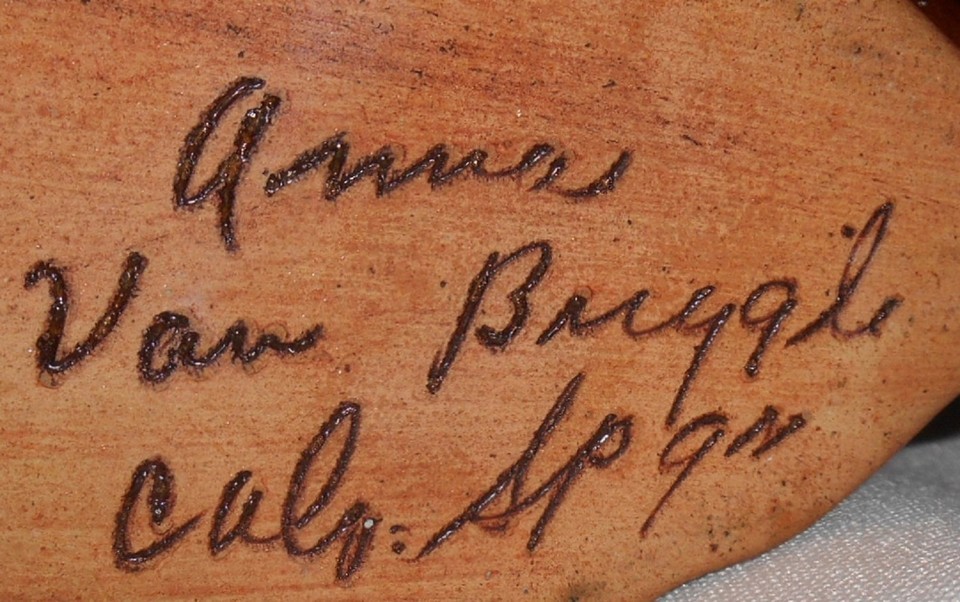 Anna
Van Briggle
Colo: Spgs